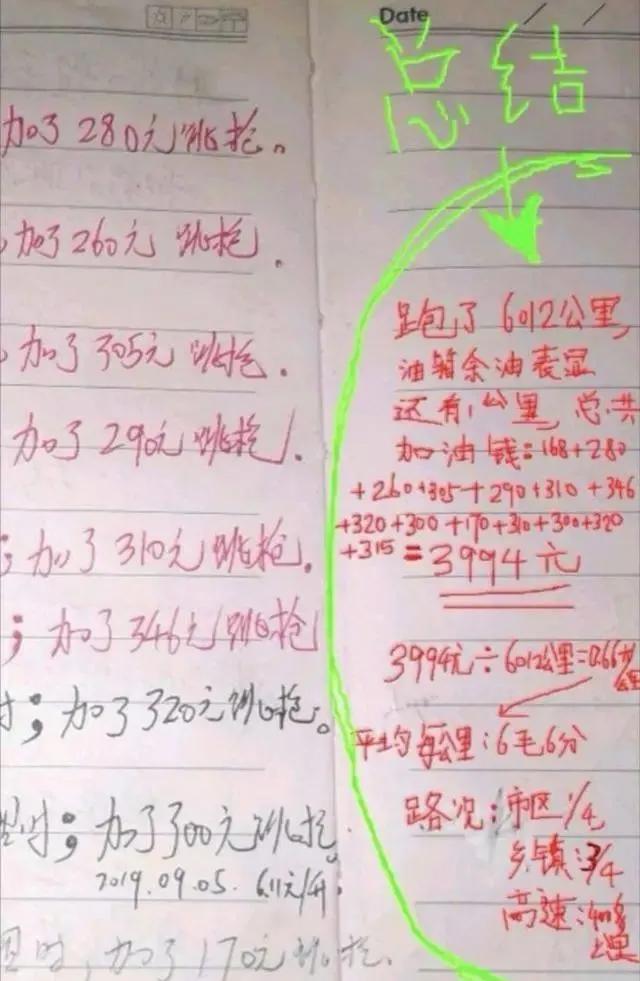 加了280元跳枪。
加了260元跳枪.
加了305元跳枪.
加了290元跳枪.
;加了310元跳枪.
;加了346元跳枪
时;加了320元跳枪。
时;加了300元跳枪.
2019.09.05. 6.11元/升.
时,加了170元跳枪.
Date
总结
跑了6012公里,
油箱余油表显
还有1公里,总共
加油钱:168+280
+260+305+290+310+346
+320+300+170+310+300+320
+315=3994元
3994元÷6012公里=0.66元/公里
平均每公里:6毛6分
路况:市区:1/4,
乡镇:3/4
高速:408公里